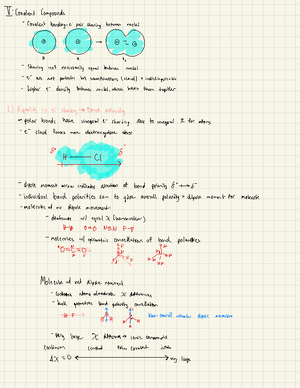 V: Covalent Compounds
- Covalent bonding: e⁻ pair sharing between nuclei
- Sharing not necessarily equal between nuclei
- e⁻ are not particles but
- higher e⁻ density between nuclei, which holds them together
1.) Equality in e⁻ sharing → Bond polarity
- polar bonds have unequal e⁻ sharing due to unequal X for atoms
- e⁻ cloud favors more electronegative atom
δ⁺ δ⁻
H — Cl
- dipole moment arrow indicates direction of bond polarity δ⁺ → δ⁻
- individual bond polarities sum to give overall polarity + dipole moment for molecule
- molecules w/ no dipole movement:
- diatomics w/ equal X (homonuclear)
H-H O=O N≡N F-F
- molecules w/ geometric cancellations of bond polarities
O=C=O
Molecules w/ net dipole moment
- X difference
- lack geometric bond polarity cancellation
H-F
Non-zero overall molecular dipole movement
- Very large X difference → ionic compounds
Continuum Covalent Polar Covalent Ionic
ΔX = 0 very large